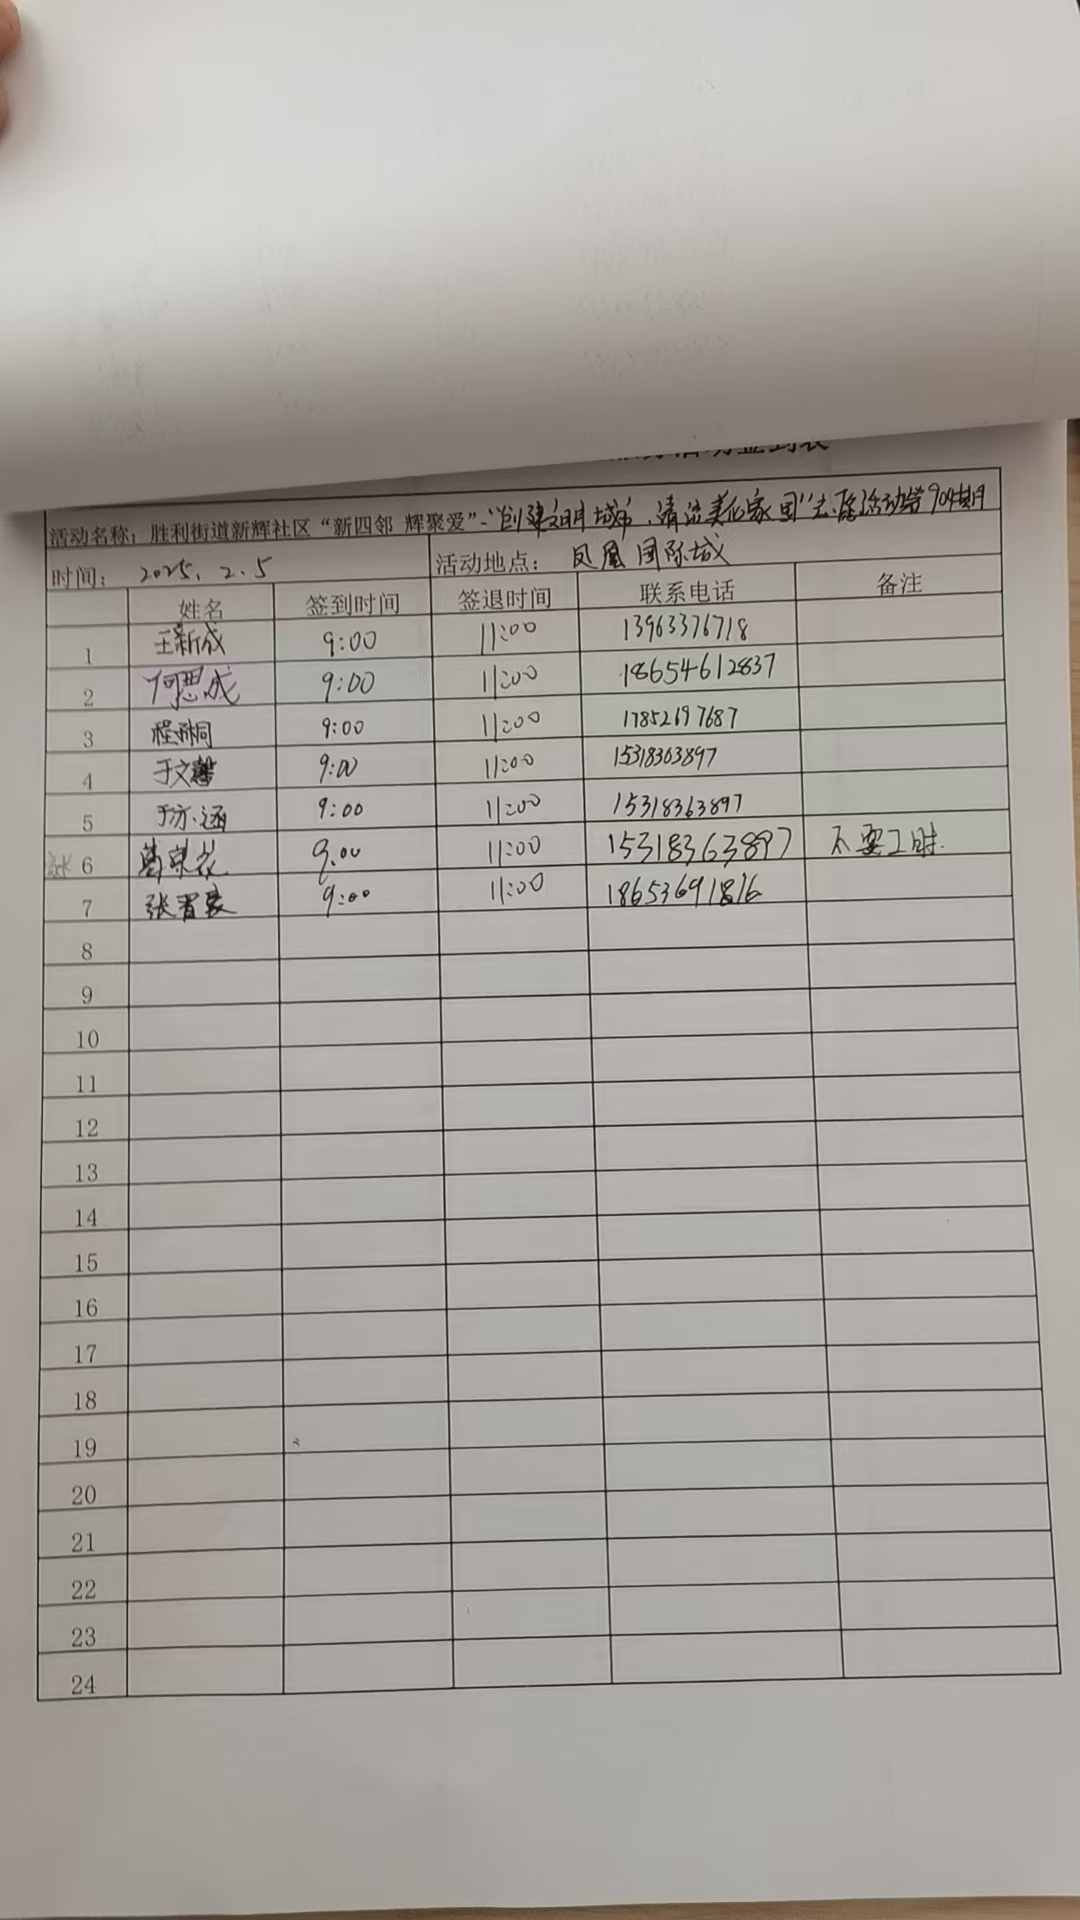 活动签到表
活动名称：胜利街道新辉社区“新四邻 辉聚爱”-“创建文明城市、清洁美化家园”志愿活动第904期
时间： 2025.2.5 活动地点： 凤凰国际城
姓名 签到时间 签退时间 联系电话 备注
1 王新成 9:00 11:00 13963376718
2 何思成 9:00 11:00 18654612837
3 程桐 9:00 11:00 17852697687
4 于文馨 9:00 11:00 15318363897
5 于亦涵 9:00 11:00 15318363897
6 葛荣花 9:00 11:00 15318363897 不要工时.
7 张 9:00 11:00 18653691816
8
9
10
11
12
13
14
15
16
17
18
19
20
21
22
23
24